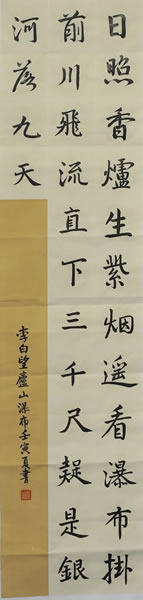 日照香爐生紫烟遥看瀑布掛
前川飛流直下三千尺疑是銀
河落九天
李白望廬山瀑布壬寅夏書